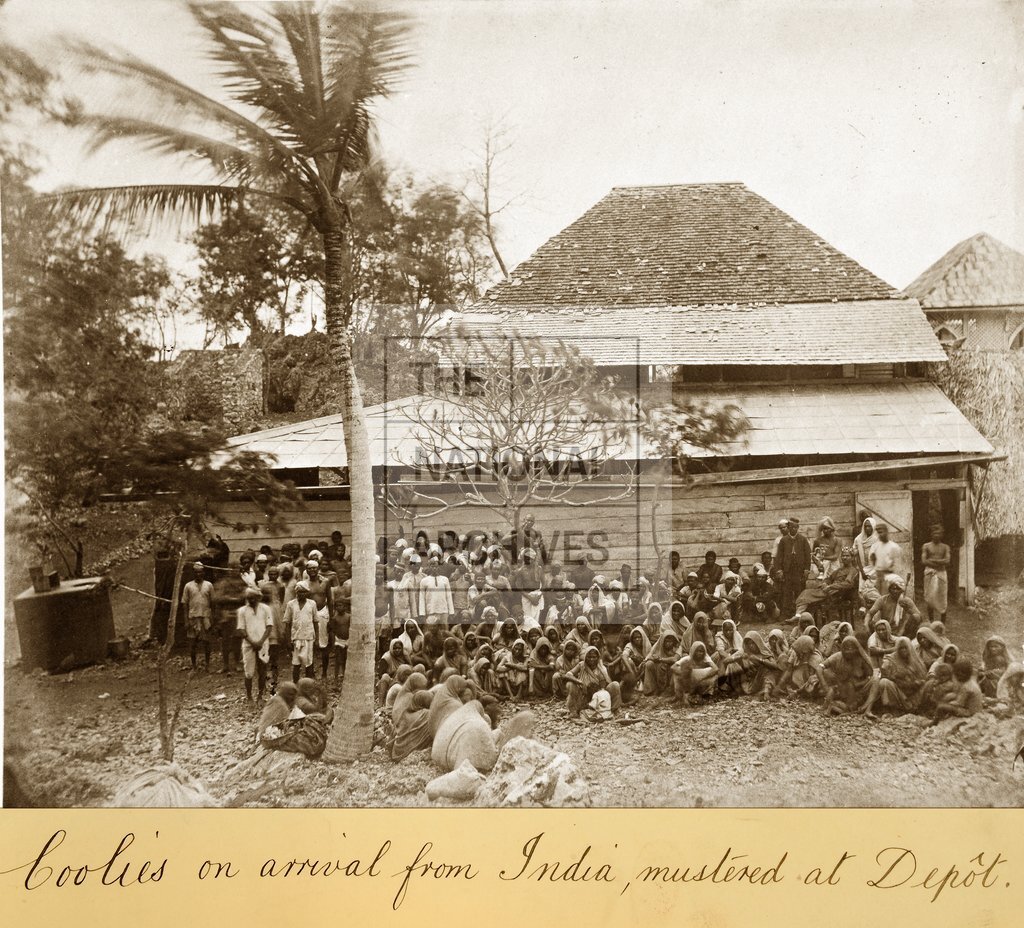 THE
NATIONAL
ARCHIVES
Coolies on arrival from India, mustered at Depôt.